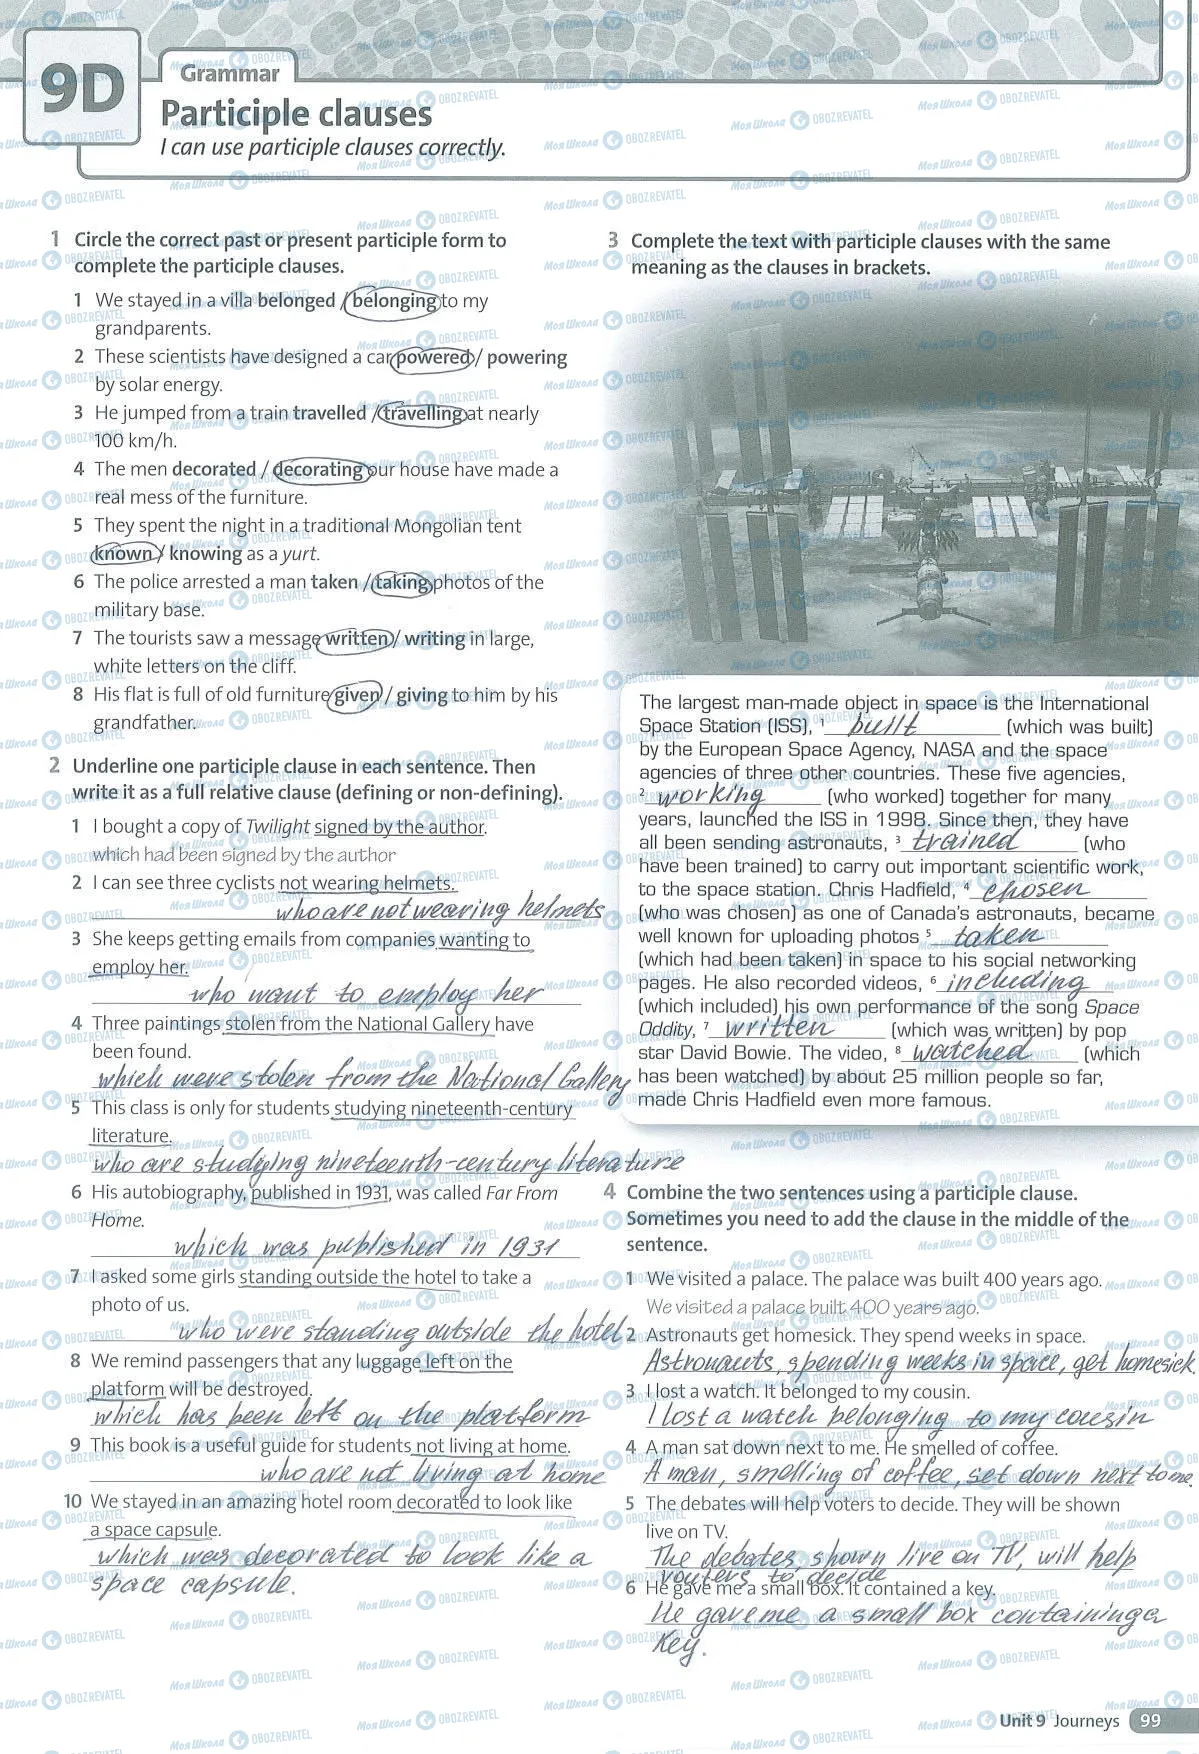 9D
Grammar
Participle clauses
I can use participle clauses correctly.
1 Circle the correct past or present participle form to
complete the participle clauses.
1 We stayed in a villa belonged / belonging to my
grandparents.
2 These scientists have designed a car powered / powering
by solar energy.
3 He jumped from a train travelled / travelling at nearly
100 km/h.
4 The men decorated / decorating our house have made a
real mess of the furniture.
5 They spent the night in a traditional Mongolian tent
known / knowing as a yurt.
6 The police arrested a man taken / taking photos of the
military base.
7 The tourists saw a message written / writing in large,
white letters on the cliff.
8 His flat is full of old furniture given / giving to him by his
grandfather.
2 Underline one participle clause in each sentence. Then
write it as a full relative clause (defining or non-defining).
1 I bought a copy of Twilight signed by the author.
which had been signed by the author
2 I can see three cyclists not wearing helmets.
who are not wearing helmets
3 She keeps getting emails from companies wanting to
employ her.
who want to employ her
4 Three paintings stolen from the National Gallery have
been found.
which were stolen from the National Gallery
5 This class is only for students studying nineteenth-century
literature.
who are studying nineteenth-century literature
6 His autobiography, published in 1931, was called Far From
Home.
which was published in 1931
7 I asked some girls standing outside the hotel to take a
photo of us.
who were standing outside the hotel
8 We remind passengers that any luggage left on the
platform will be destroyed.
which has been left on the platform
9 This book is a useful guide for students not living at home.
who are not living at home
10 We stayed in an amazing hotel room decorated to look like
a space capsule.
which was decorated to look like a
space capsule.
3 Complete the text with participle clauses with the same
meaning as the clauses in brackets.
The largest man-made object in space is the International
Space Station (ISS), 1 built (which was built)
by the European Space Agency, NASA and the space
agencies of three other countries. These five agencies,
2 working (who worked) together for many
years, launched the ISS in 1998. Since then, they have
all been sending astronauts, 3 trained (who
have been trained) to carry out important scientific work,
to the space station. Chris Hadfield, 4 chosen
(who was chosen) as one of Canada's astronauts, became
well known for uploading photos 5 taken
(which had been taken) in space to his social networking
pages. He also recorded videos, 6 including
(which included) his own performance of the song Space
Oddity, 7 written (which was written) by pop
star David Bowie. The video, 8 watched (which
has been watched) by about 25 million people so far,
made Chris Hadfield even more famous.
4 Combine the two sentences using a participle clause.
Sometimes you need to add the clause in the middle of the
sentence.
1 We visited a palace. The palace was built 400 years ago.
We visited a palace built 400 years ago.
2 Astronauts get homesick. They spend weeks in space.
Astronauts, spending weeks in space, get homesick.
3 I lost a watch. It belonged to my cousin.
I lost a watch belonging to my cousin
4 A man sat down next to me. He smelled of coffee.
A man, smelling of coffee, set down next to me.
5 The debates will help voters to decide. They will be shown
live on TV.
The debates, shown live on TV, will help
vouters to decide
6 He gave me a small box. It contained a key.
He gave me a small box containing a
key.
Unit 9 Journeys 99